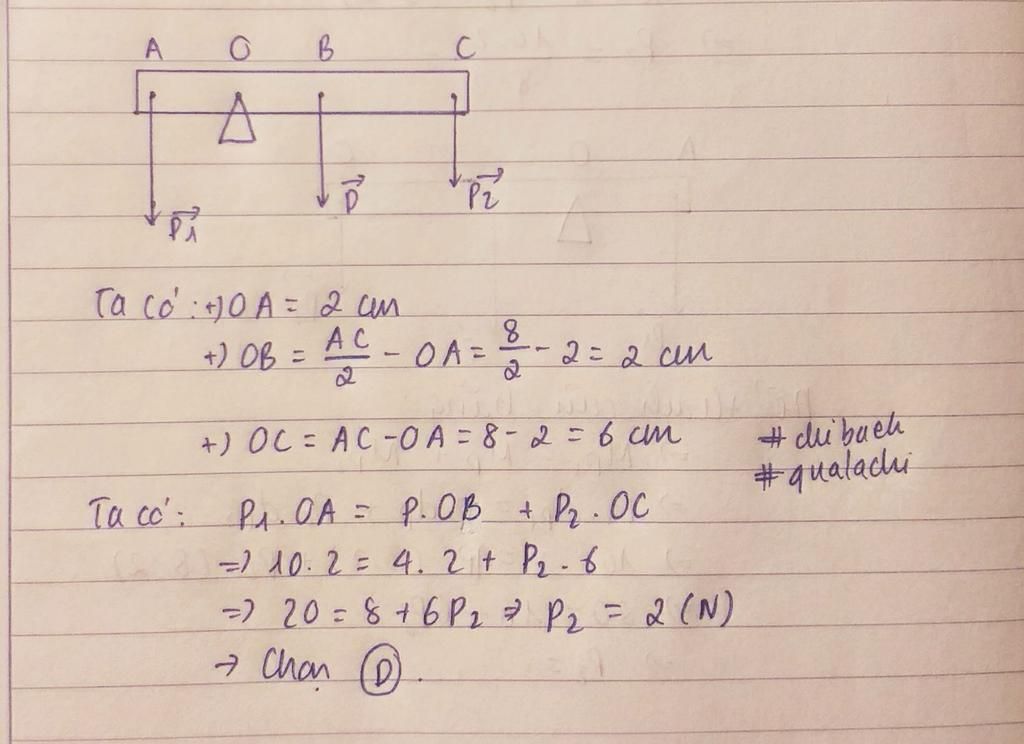 A O B C
P₁ P P₂
Ta có: +) OA = 2 cm
+) OB = AC/2 - OA = 8/2 - 2 = 2 cm
+) OC = AC - OA = 8 - 2 = 6 cm
#chibach
#qualachi
Ta có: P₁.OA = P.OB + P₂.OC
=> 10.2 = 4.2 + P₂.6
=> 20 = 8 + 6P₂ => P₂ = 2 (N)
→ Chọn D.